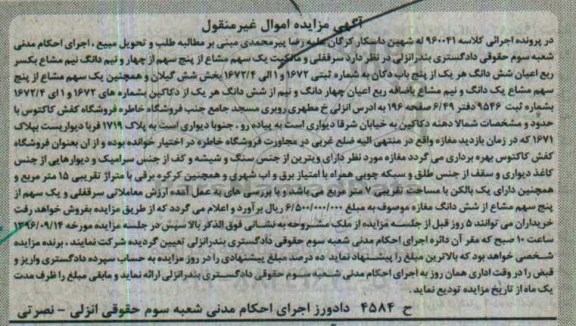 آگهی مزایده اموال غیرمنقول
در پرونده اجرائی کلاسه ۹۶۰۰۴۱ له شهین داسکار کرگان علیه رضا پیرمحمدی مبنی بر مطالبه طلب و تحویل مبیع ، اجرای احکام مدنی
شعبه سوم حقوقی دادگستری بندرانزلی در نظر دارد سرقفلی و مالکیت یک سهم مشاع از پنج سهم از چهار و نیم دانگ نیم مشاع بکسر
ربع اعیان شش دانگ هر یک از پنج باب دکان به شماره ثبتی ۱۶۷۲ و ۱ الی ۱۶۷۲/۴ بخش شش گیلان و همچنین یک سهم مشاع از پنج
سهم مشاع یک دانگ و نیم مشاع باضافه ربع اعیان چهار دانگ و نیم از شش دانگ هر یک از دکاکین بشماره های ۱۶۷۲ و ۱ ای ۱۶۷۲/۴
بشماره ثبت ۹۵۴۶ دفتر ۶/۴۹ صفحه ۱۹۶ به ادرس انزلی خ مطهری روبری مسجد جامع جنب فروشگاه خاطره فروشگاه کفش کاکتوس با
حدود و مشخصات شمالا دهنه دکاکین به خیابان شرقا دیواری است به پیاده رو . جنوبا دیواری است به پلاک ۱۷۱۹ غربا دیواریست بپلاک
۱۶۷۱ که در زمان بازدید مغازه واقع در منتهی الیه ضلع غربی در مجاورت فروشگاه خاطره در اختیار خوانده بوده و از ان بعنوان فروشگاه
کفش کاکتوس بهره برداری می گردد مغازه مورد نظر دارای ویترین از جنس سنگ و شیشه و کف از جنس سرامیک و دیوارهایی از جنس
کاغذ دیواری و سقف از جنس طلق و سیکه چوبی همراه با امتیاز برق و اب شهری و همچنین کرکره برقی با متراژ تقریبی ۱۵ متر مربع و
همچنین دارای یک بالکن با مساحت تقریبی ۷ متر مربع می باشد و با بررسی های به عمل آمده ارزش معاملاتی سرقفلی و یک سهم از
پنج سهم مشاع از شش دانگ مغازه موصوف به مبلغ ۶/۵۰۰/۰۰۰/۰۰۰ ریال برآورد و اعلام می گردد که از طریق مزایده بفروش خواهد رفت
خریداران می توانند ۵ روز قبل از جلسه مزایده از ملک مشروحه به نشانی فوق الذکر بالا سپس در جلسه مزایده مورخه ۱۳۹۶/۰۹/۱۴
ساعت ۱۰ صبح که مقر آن دائره اجرای احکام مدنی شعبه سوم حقوقی دادگستری بندرانزلی تعیین گردیده شرکت نمایند . برنده مزایده
شخصی خواهد بود که بالاترین مبلغ را پیشنهاد نماید ده درصد مبلغ پیشنهادی را در روز مزایده به حساب سپرده دادگستری واریز و
قبض را در وقت اداری همان روز به اجرای احکام مدنی شعبه سوم حقوقی دادگستری بندرانزلی ارائه نماید و مابقی مبلغ را ظرف مدت
یک ماه از تاریخ مزایده تودیع نماید .
ح ۴۵۸۴ دادورز اجرای احکام مدنی شعبه سوم حقوقی انزلی - نصرتی